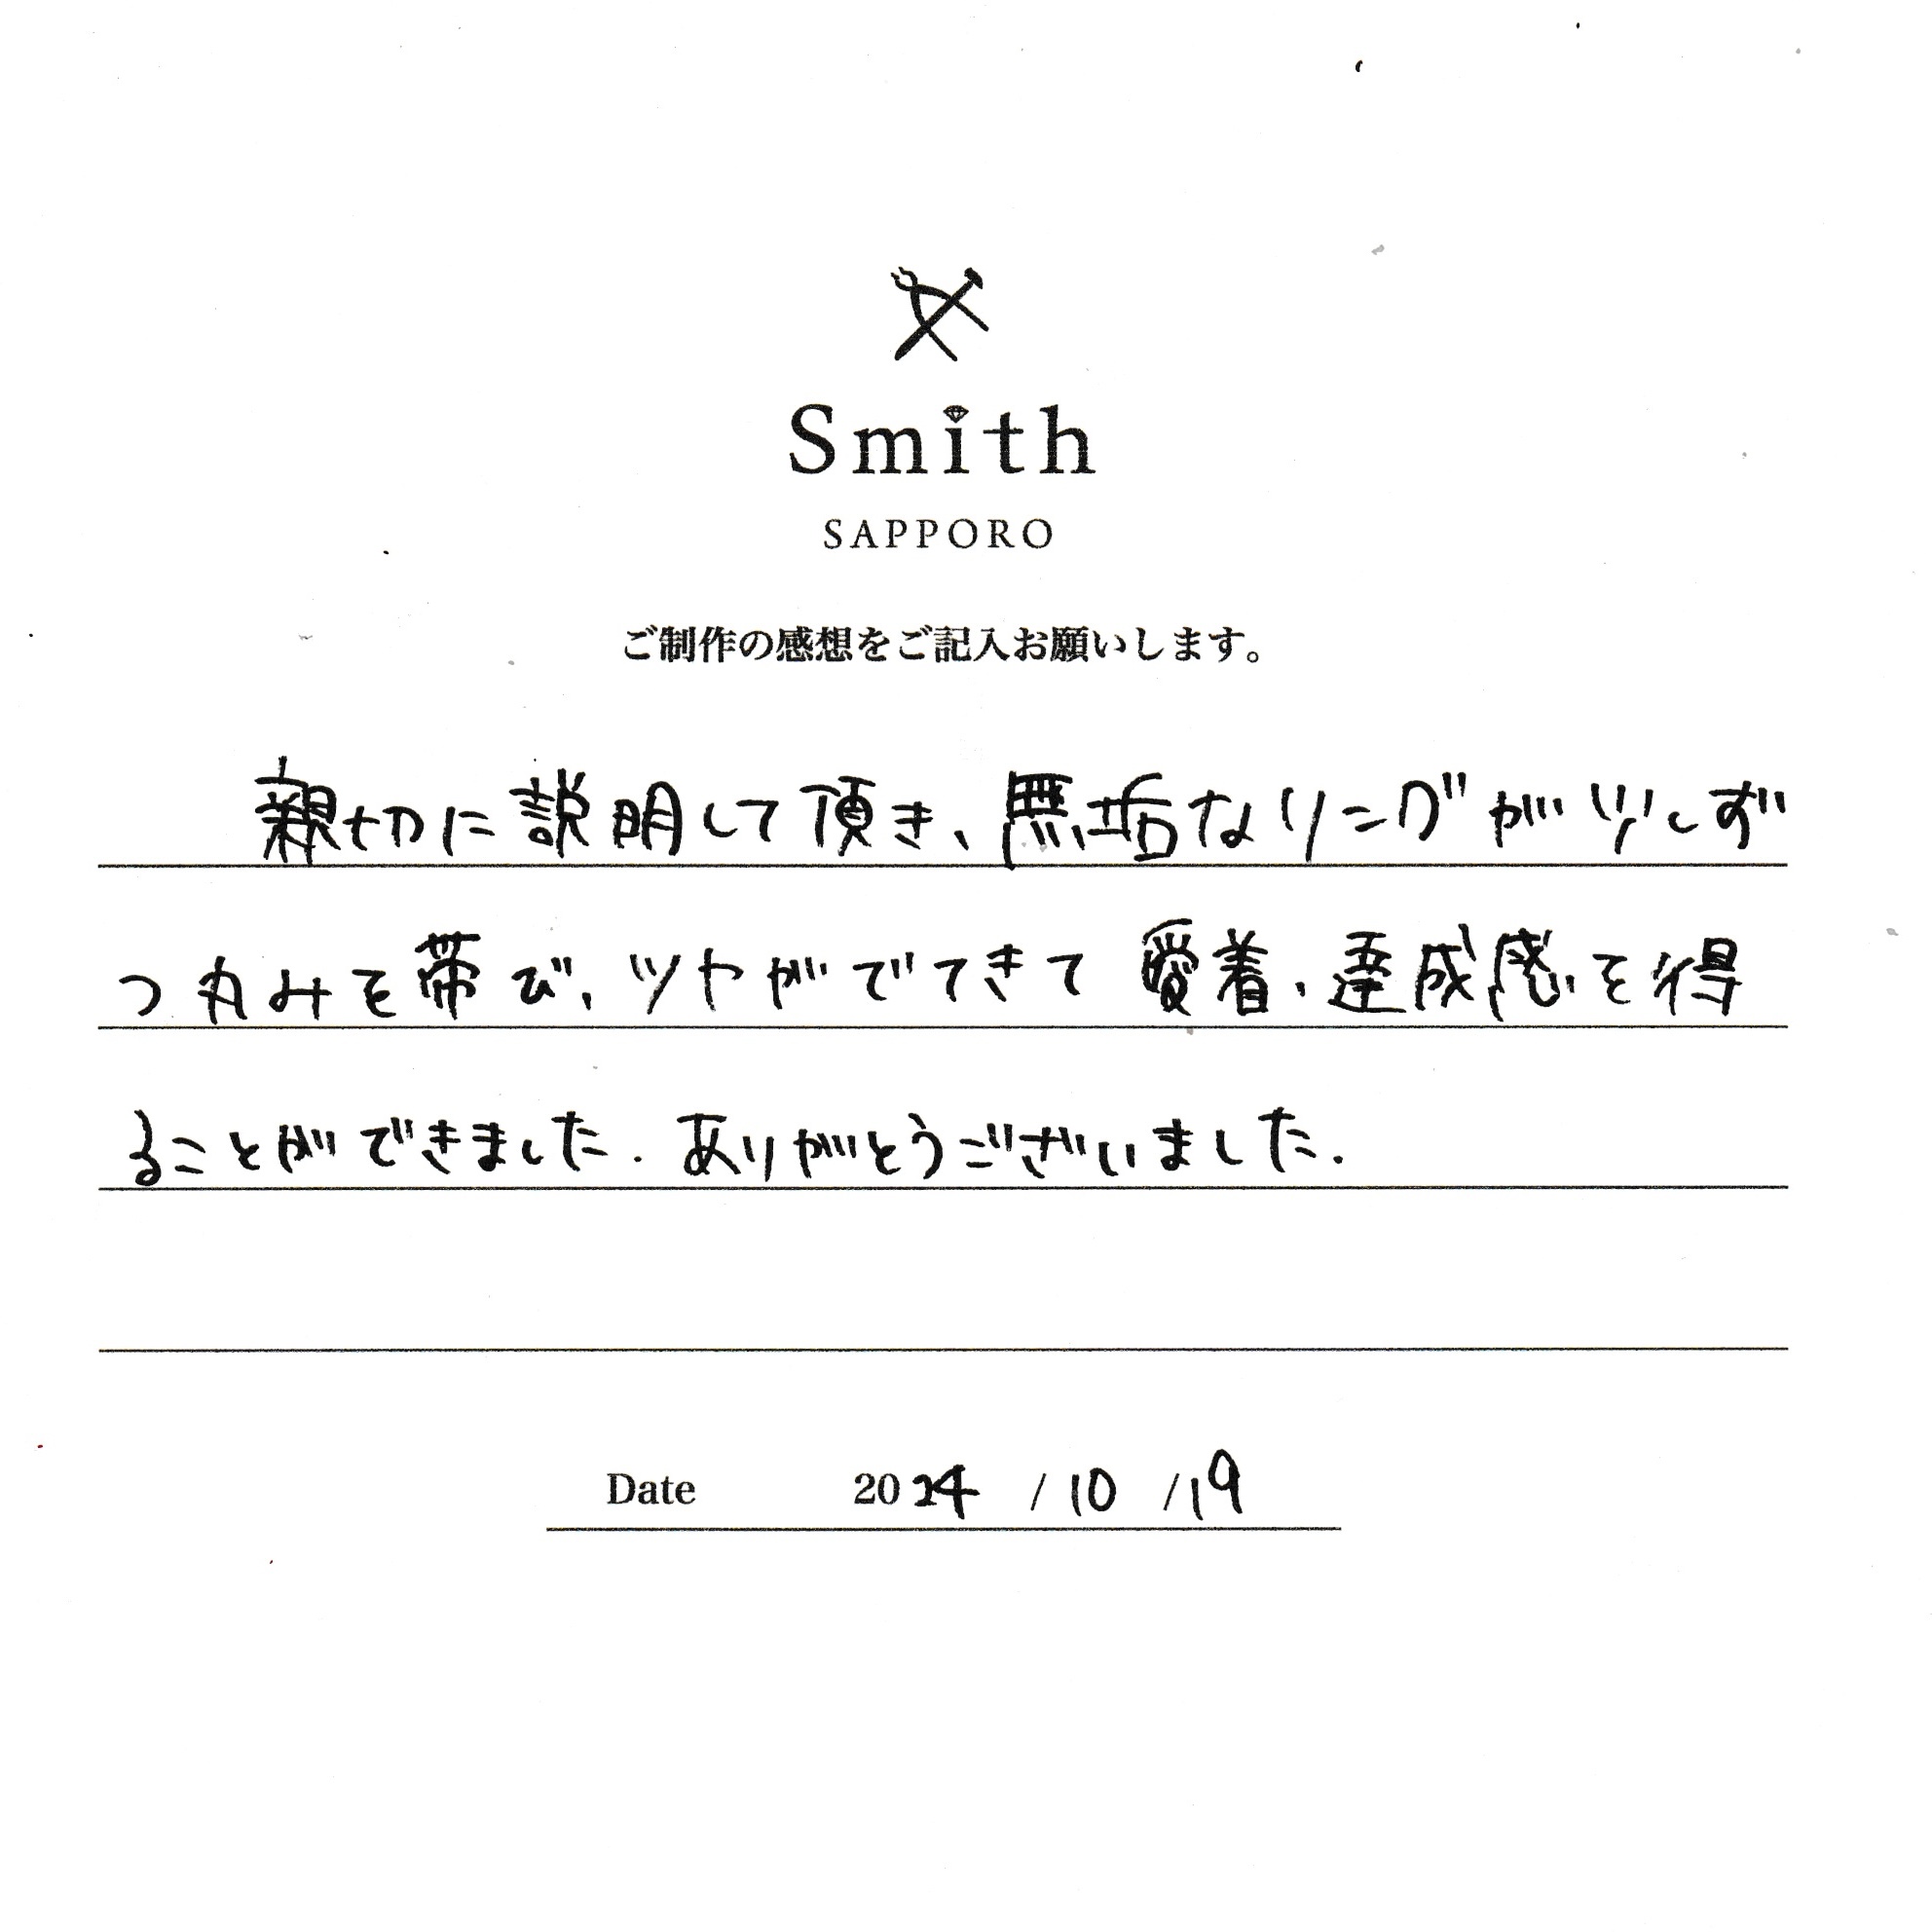 Smith
SAPPORO
ご制作の感想をご記入お願いします。
親切に説明して頂き、無垢なリングが少しず
つ丸みを帯び、ツヤがでてきて愛着、達成感を得
ることができました. ありがとうございました.
Date 2024 / 10 / 19